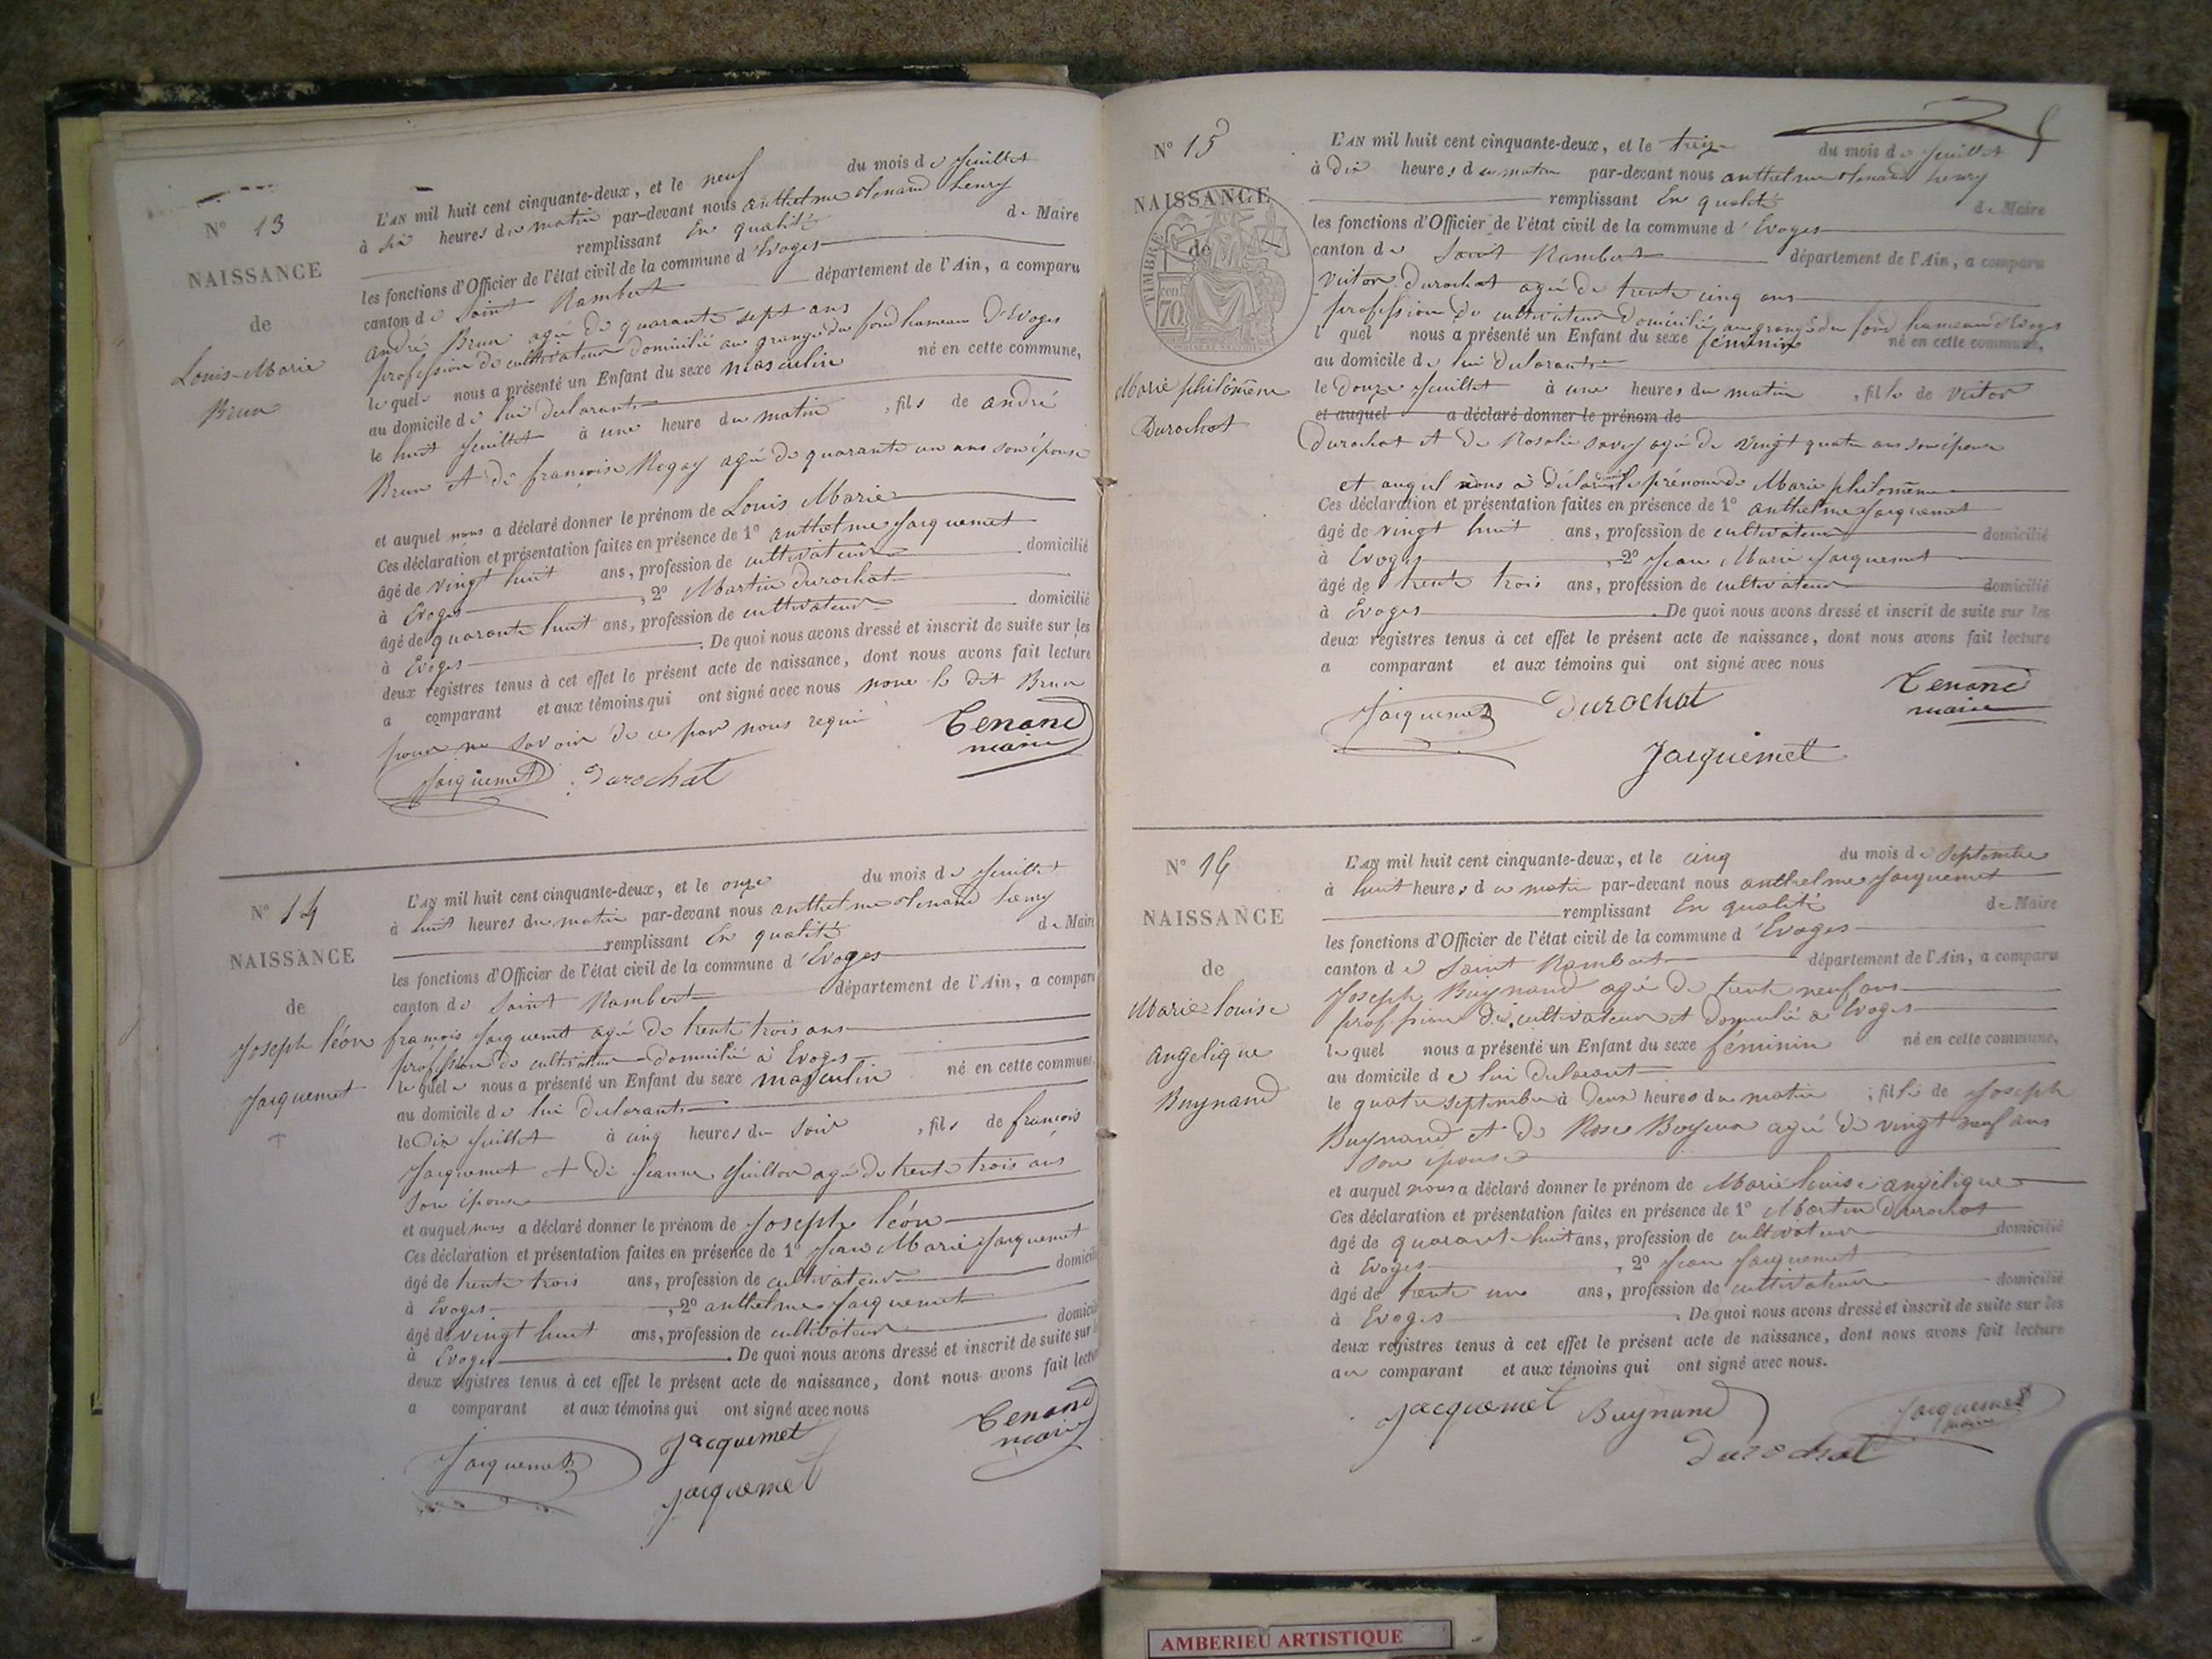 N° 13
NAISSANCE
de
Louis-Marie
Brun
L'AN mil huit cent cinquante-deux, et le neuf du mois de juillet
à six heures du matin par-devant nous anthelme tenand henry
remplissant En qualité de Maire
les fonctions d'Officier de l'état civil de la commune d'Evoges
canton de Saint Rambert département de l'Ain, a comparu
andré Brun agé de quarante sept ans
profession de cultivateur domicilié au grange du fond hameau d'Evoges
lequel nous a présenté un Enfant du sexe masculin né en cette commune,
au domicile de lui declarant
le huit juillet à une heure du matin , fils de andré
Brun et de françoise Regay agé de quarante un ans son épouse
et auquel nous a déclaré donner le prénom de Louis Marie
Ces déclaration et présentation faites en présence de 1° anthelme jacquemet
âgé de vingt huit ans, profession de cultivateur domicilié
à Evoges , 2° Martin durochat
âgé de quarante huit ans, profession de cultivateur domicilié
à Evoges . De quoi nous avons dressé et inscrit de suite sur les
deux registres tenus à cet effet le présent acte de naissance, dont nous avons fait lecture
a comparant et aux témoins qui ont signé avec nous non le dit Brun
pour ne savoir de ce par nous requi
Tenand
maire
Jacquemet Durochat
N° 14
NAISSANCE
de
Joseph léon
Jacquemet
L'AN mil huit cent cinquante-deux, et le onze du mois de juillet
à huit heures du matin par-devant nous anthelme tenand henry
remplissant En qualité de Mair
les fonctions d'Officier de l'état civil de la commune d'Evoges
canton de Saint Rambert département de l'Ain, a comparu
françois jacquemet agé de trente trois ans
profession de cultivateur domicilié à Evoges
lequel nous a présenté un Enfant du sexe masculin né en cette commune,
au domicile de lui declarant
le dix juillet à cinq heures du soir , fils de françois
jacquemet et de jeanne juillon agé de trente trois ans
son épouse
et auquel nous a déclaré donner le prénom de Joseph léon
Ces déclaration et présentation faites en présence de 1° jean Marie jacquemet
âgé de trente trois ans, profession de cultivateur domicilié
à Evoges , 2° anthelme jacquemet
âgé de vingt huit ans, profession de cultivateur domicilié
à Evoges . De quoi nous avons dressé et inscrit de suite sur les
deux registres tenus à cet effet le présent acte de naissance, dont nous avons fait lecture
a comparant et aux témoins qui ont signé avec nous
Tenand
maire
Jacquemet Jacquemet
jacquemet
N° 15
NAISSANCE
de
TIMBRE
70
Marie philomène
Durochat
L'AN mil huit cent cinquante-deux, et le treize du mois de juillet
à dix heures du matin par-devant nous anthelme tenand henry
remplissant En qualité de Maire
les fonctions d'Officier de l'état civil de la commune d'Evoges
canton de Saint Rambert département de l'Ain, a comparu
Victor durochat agé de trente cinq ans
profession de cultivateur domicilié au grange du fond hameau d'Evoges
l quel nous a présenté un Enfant du sexe féminin né en cette commune,
au domicile de lui declarant
le douze juillet à une heures du matin , fille de Victor
et auquel a déclaré donner le prénom de
durochat et de Rosalie savey agé de vingt quatre ans son épouse
et auquel nous a déclaré donner le prénom de Marie philomène
Ces déclaration et présentation faites en présence de 1° anthelme jacquemet
âgé de vingt huit ans, profession de cultivateur domicilié
à Evoges , 2° jean Marie jacquemet
âgé de trente trois ans, profession de cultivateur domicilié
à Evoges . De quoi nous avons dressé et inscrit de suite sur les
deux registres tenus à cet effet le présent acte de naissance, dont nous avons fait lecture
a comparant et aux témoins qui ont signé avec nous
Jacquemet Durochat Tenand
maire
Jacquemet
N° 16
NAISSANCE
de
Marie louise
angelique
Buynand
L'AN mil huit cent cinquante-deux, et le cinq du mois de septembre
à huit heures du matin par-devant nous anthelme jacquemet
remplissant En qualité de Maire
les fonctions d'Officier de l'état civil de la commune d'Evoges
canton de Saint Rambert département de l'Ain, a comparu
Joseph Buynand agé de trente neuf ans
profession de cultivateur et domicilié à Evoges
lequel nous a présenté un Enfant du sexe féminin né en cette commune,
au domicile de lui declarant
le quatre septembre à deux heures du matin , fille de Joseph
Buynand et de Rose agé de vingt neuf ans
son épouse
et auquel nous a déclaré donner le prénom de Marie louise angélique
Ces déclaration et présentation faites en présence de 1° Martin durochat
âgé de quarante huit ans, profession de cultivateur domicilié
à Evoges , 2° jean jacquemet
âgé de trente un ans, profession de cultivateur domicilié
à Evoges . De quoi nous avons dressé et inscrit de suite sur les
deux registres tenus à cet effet le présent acte de naissance, dont nous avons fait lecture
au comparant et aux témoins qui ont signé avec nous.
jacquemet Buynand Jacquemet
Durochat
AMBERIEU ARTISTIQUE